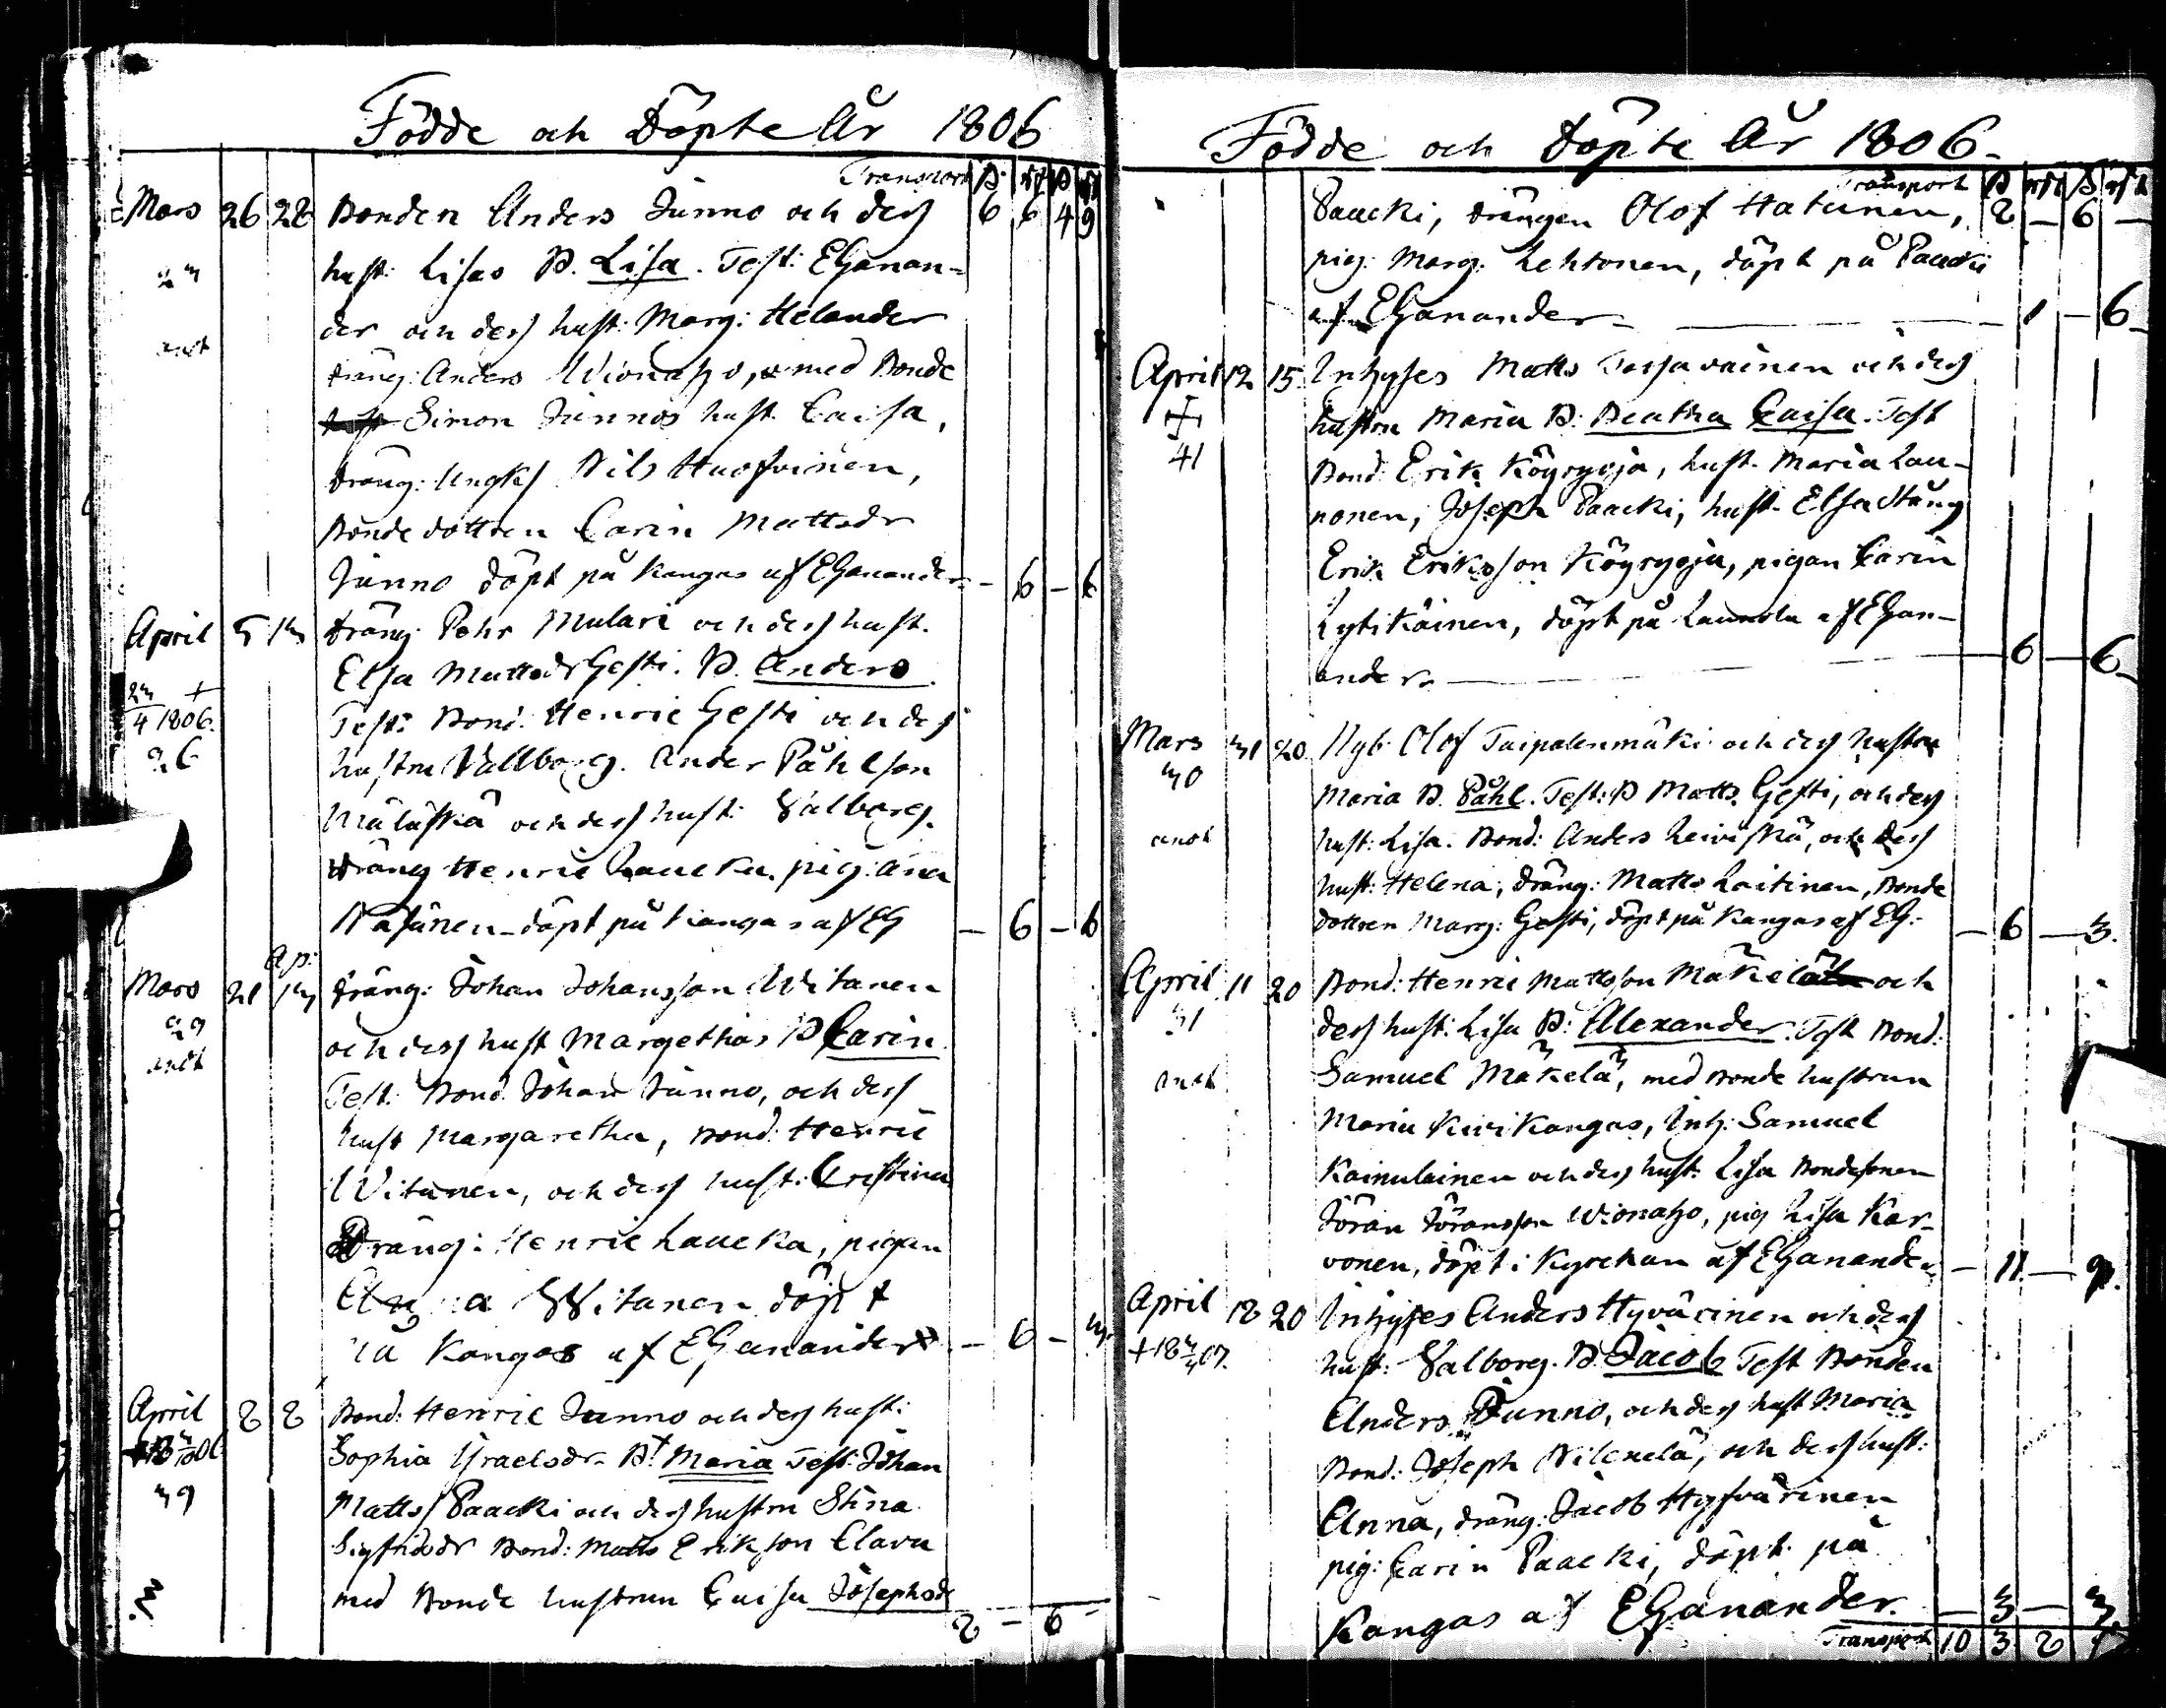 Födde och Döpte År 1806
Transport
Mars 26 28 Bonden Anders Junno och dess 6 6 4 9
hust: Lisas B. Lisa. Test: EGanan-
der och dess hust: Marg: Helander
dräng: Anders Wionaho, med Bonde
Simon Junnos hust. Caisa,
dräng: Nils Huofvinen,
Bonde dottren Carin Mattsdr
Junno döpt på Kangas af EGanander - 6 - 6
April 5 13 dräng: Pehr Mulari och dess hust.
Elsa Mattsdr Gesti. B. Anders.
4 1806.
26
Test: Bond: Henric Gesti och dess
hustru Vallborg. Ander Påhlson
Määttä och dess hust: Valborg.
dräng Henric Laucka. pig: Ana
döpt på Kangas af EG - 6 - 6
Ap:
Mars 21 13 dräng: Johan Johansson Witanen
29
och dess hust Margethas B Carin
Test: Bond. Johan Junno, och dess
hust Margaretha, Bond: Henric
Witanen, och dess hust: Cristina
Dräng: Henric Laucka, pigan
Anna Witanen döpt
på Kangas af EGanander - 6 - 3
April 2 2 Bond: Henric Junno och dess hust:
Sophia Israelsdr B: Maria Test: Johan
39
Matts Paacki och dess hustru Stina
Sigfridsdr Bond: Matts Erikson Clavu
med Bonde hustrun Caisa Josephsdr
2 - 6 -
Födde och Döpte År 1806.
Transport
Paacki, drängen Olof Hatunen, 2 - 6 -
pig: Marg: Lehtonen, döpt på Paacki
af EGanander - 1 - 6
April 12 15 Inhyses Matts Tossavainen och dess
+
41
hustru Maria B: Beatha Caisa. Test
Bond: Erik Köyryoja, hust. Maria Lau-
nonen, Joseph Paacki, hust. Elsa Stång
Erik Eriksson Köyryoja, pigan Carin
Lytikäinen, döpt på Launola af EGan-
ander. - 6 - 6
Mars 31 20 Nyb. Olof Taipalenmäki och dess hustru
30
Maria B. Påhl. Test: B Matts Gesti, och dess
hust: Lisa. Bond: Anders Leiviskä, och dess
hust: Helena, dräng: Matts Laitinen, Bonde
dottren Marg: Gesti, döpt på Kangas af EG: - 6 - 3.
April 11 20 Bond: Henric Mattsson Mäkelä och
31
dess hust: Lisa B: Allexander. Test Bond:
Samuel Mäkelä, med Bonde hustrun
Maria Kivikangas, Inh: Samuel
Kainulainen och dess hust: Lisa Bondesonen
Jöran Jöransson Wionaho, pig Lisa Kar-
vonen, döpt i Kyrckan af EGanander - 11 - 9.
April 12 20 Inhyses Anders Hyvärinen och dess
hust: Valborg. B. Jacob Test Bonden
Anders Junno, och dess hust Maria
Bond: Joseph Nikenelä, och dess hust:
Anna, dräng: Jacob Hyfvärinen
pig: Carin Paacki, döpt på
Kangas af EGanander. - 3 - 3
Transport 10 3 2